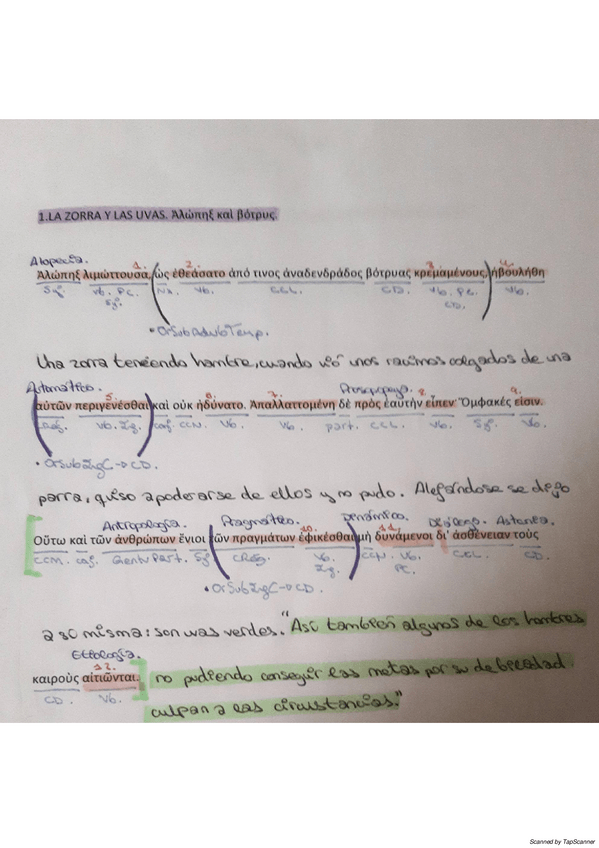 1.LA ZORRA Y LAS UVAS. Ἀλώπηξ καὶ βότρυς.
Alopecia.
1. 2. 3. 4.
Ἀλώπηξ λιμώττουσα, (ὡς ἐθεάσατο ἀπό τινος ἀναδενδράδος βότρυας κρεμαμένους,) ἠβουλήθη
Sj. Vb. PC. Sj. Nx. Vb. CCL. CD. Vb. PC. CD. Vb.
• OrSubAdvbTemp.
Una zorra teniendo hambre, cuando vió unos racimos colgados de una
5. 6. 7. Prosopopeya. 8. 9.
(αὐτῶν περιγενέσθαι) καὶ οὐκ ἠδύνατο. Ἀπαλλαττομένη δὲ πρὸς ἑαυτὴν εἶπεν· Ὄμφακές εἰσιν.
CRég. Vb. Inf. conj. CCN. Vb. Vb. part. CCL. Vb. Sj. Vb.
• OrSubInfC → CD.
parra, quiso apoderarse de ellos y no pudo. Alejándose se dijo
Antropología. Pragmático. 10. Dinámico. 11.
Οὕτω καὶ τῶν ἀνθρώπων ἔνιοι (τῶν πραγμάτων ἐφικέσθαι) μὴ δυνάμενοι δι' ἀσθένειαν τοὺς
CCM. conj. GenitvPart. Sj. CRég. Vb. Inf. CCN. Vb. PC. CD.
• OrSubInfC → CD.
a sí misma: son uvas verdes. "Así también algunos de los hombres
Etiología.
12.
καιροὺς αἰτιῶνται. no pudiendo conseguir las metas por su debilidad
CD. Vb. culpan a las circustancias."
Scanned by TapScanner